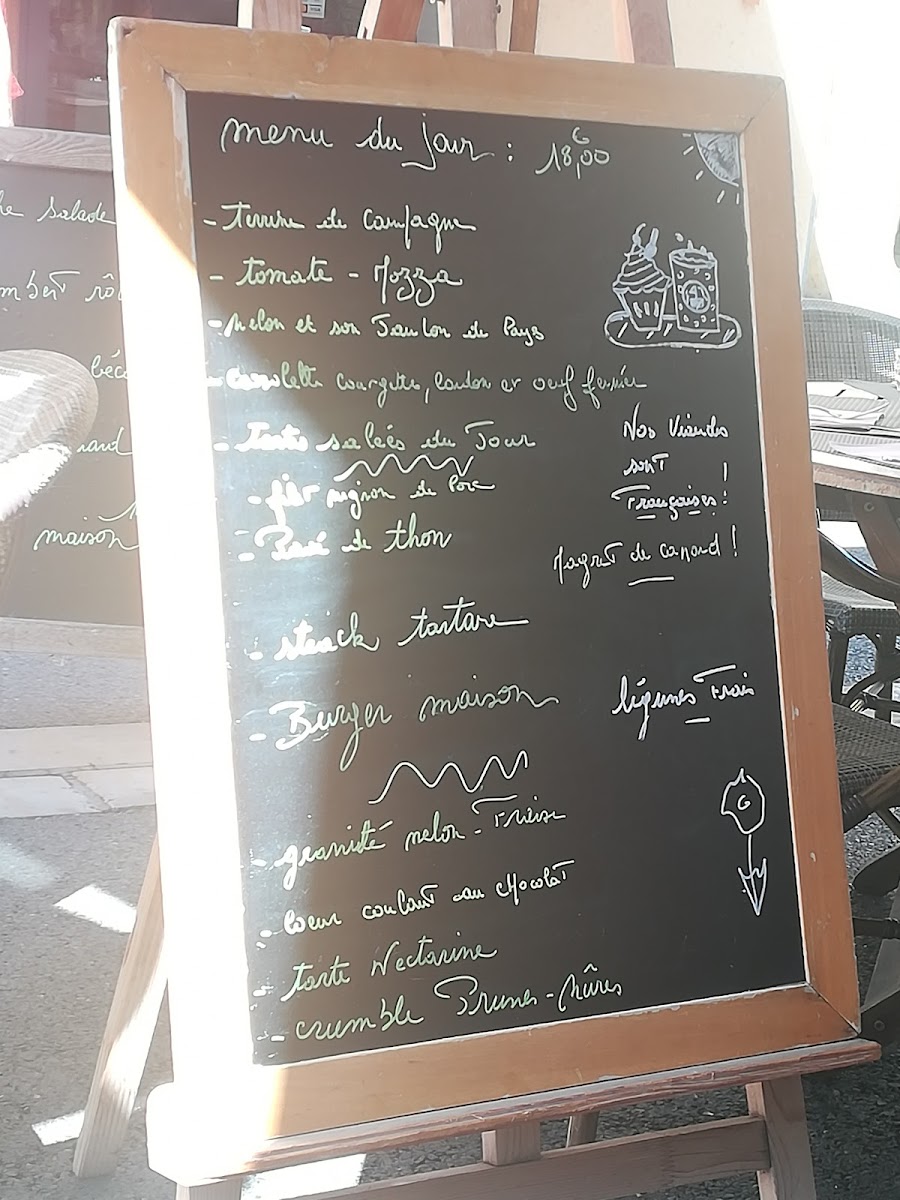 menu du jour : 18,00 €
- Terrine de Campagne
- tomate - Mozza
- Melon et son Jambon de Pays
- courgette, lardon et oeuf fermier
- Tartes salées du Jour
- filet mignon de Porc
- Pavé de thon
- steack tartare
- Burger maison
- granité melon - Fraise
- Coeur coulant au chocolat
- tarte Nectarine
- crumble Prunes - Mûres
Nos Viandes
sont
Françaises !
Magret de canard !
légumes Frais
salade
maison